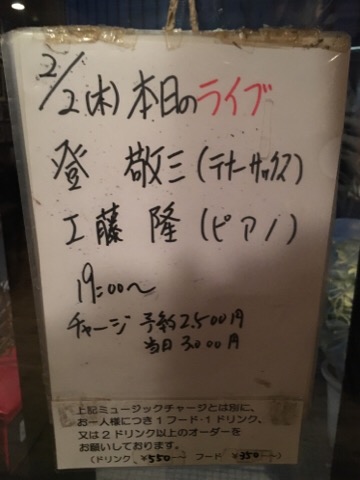 2/2(木)本日のライブ
登 敬三(テナーサックス)
工藤 隆(ピアノ)
19:00〜
チャージ 予約2,500円
当日3,000円
上記ミュージックチャージとは別に、
お一人様につき1フード・1ドリンク、
又は2ドリンク以上のオーダーを
お願いしております。
(ドリンク、¥550〜 フード ¥350〜)